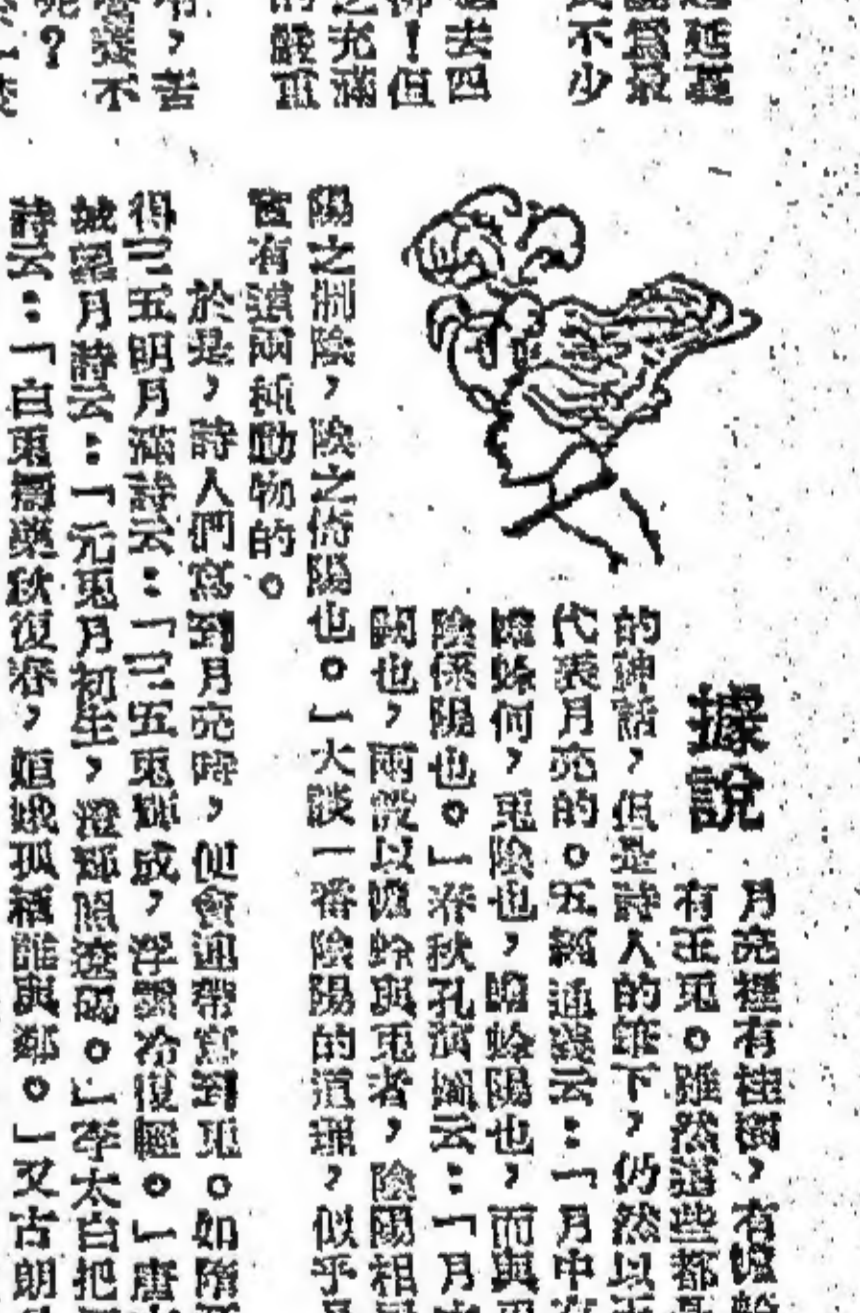 延
不少
去四
！但
充滿
嚴重
，苦
不
呢？
據說
月亮裡有桂樹，有蟾蜍
有玉兎。雖然這些都是
的神話，但是詩人的筆下，仍然以玉
代表月亮的。五經通義云：「月中有
蟾蜍何，兎陰也，蟾蜍陽也，而與兎
陰係陽也。」春秋孔演圖云：「月
闕也，兩設以蟾蜍與兎者，陰陽相
陽之制陰，陰之倚陽也。」大談一番陰陽的道理，似乎
有這兩種動物的。
於是，詩人們寫到月亮時，便會連帶寫到兎。如隋
得三五明月滿詩云：「三五兎輝成，浮雲冷復輕。」唐
城望月詩云：「元兎月初生，澄輝照遼碣。」李太白把
詩云：「白兎擣藥秋復春，姮娥孤棲誰與鄰。」又古朗